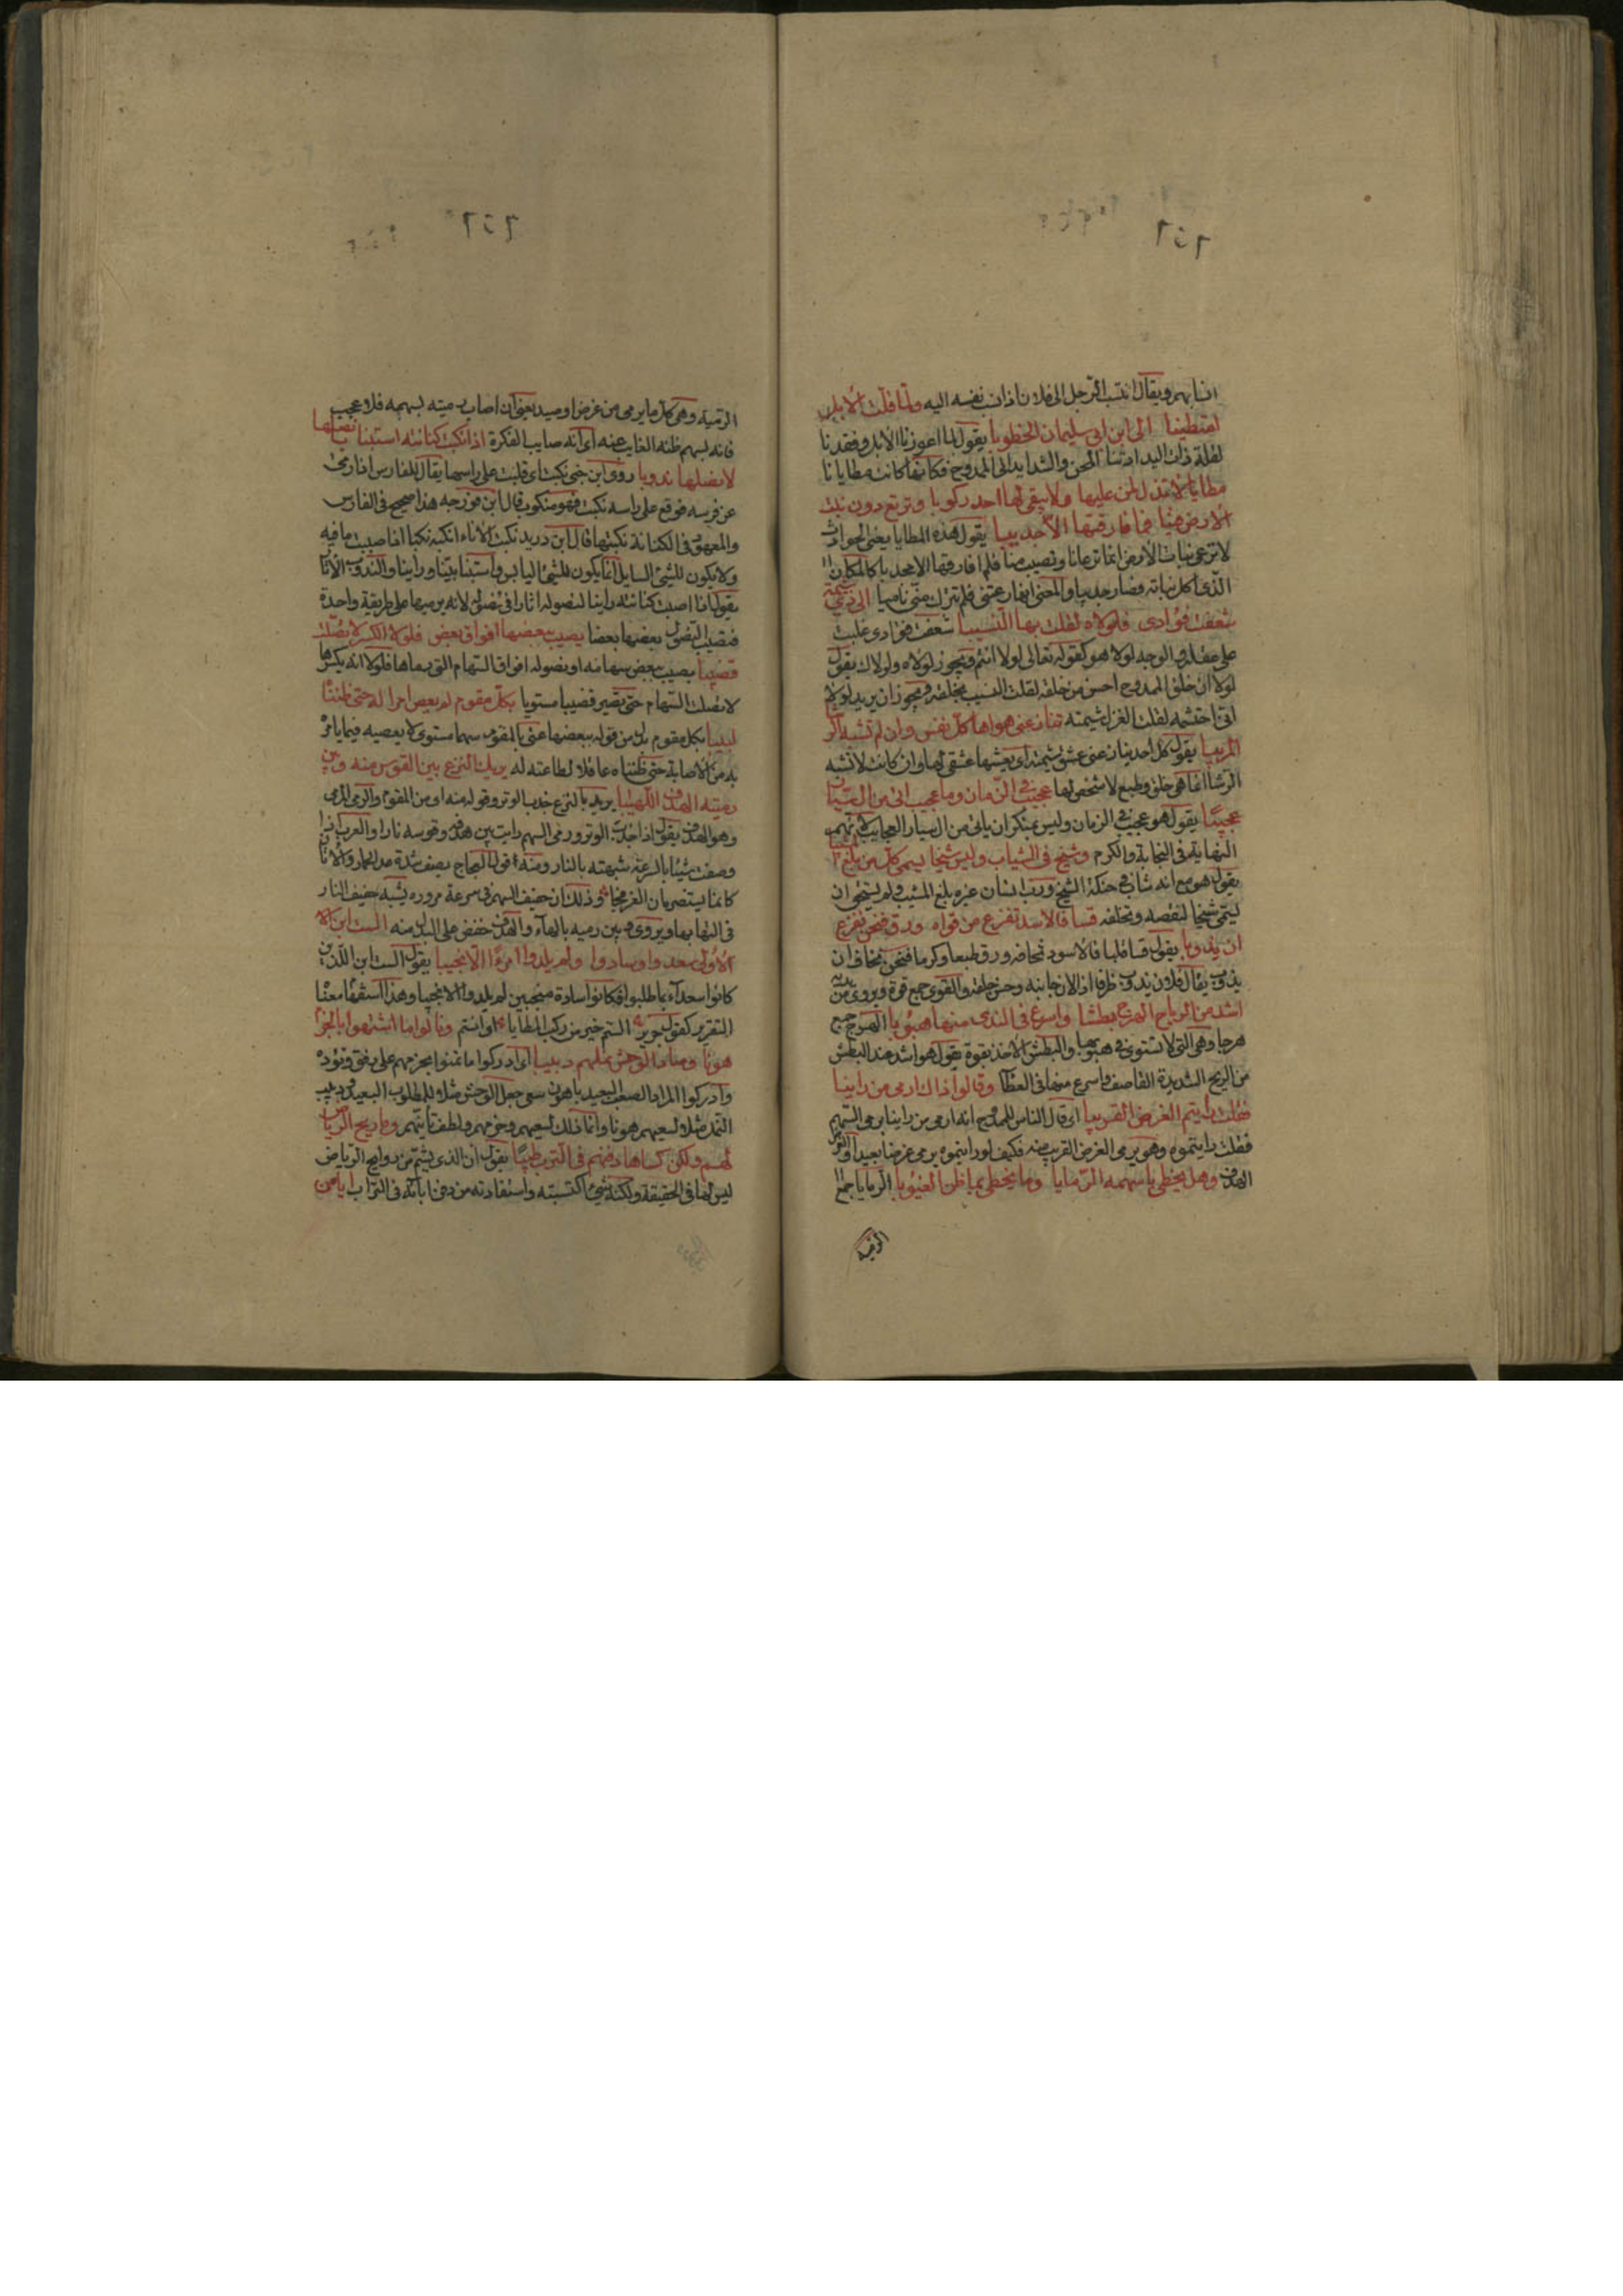 انسابهم ويقال انتسب الرجل الى فلان اذا نسب نفسه اليه ولما قلت الابل
امتطينا الى ابن ابي سليمان الخطوبا يقول لما اعوزنا الابل وفقدنا
لقلة ذات اليد ادتنا المحن والشدايد الى الممدوح فكانها كانت مطايانا
مطايا لا تذل لمن عليها ولا يبقى لها احد ركوبا وترتع دون نبت
الارض فينا فما فارقتها الا جديبا يقول هذه المطايا يعني الحوادث
لا ترعى نبات الارض انما ترعانا وتصيب منا فلم افارقها الا مجدبا كالمكان
الذي اكل نباته فصار جديبا والمعنى انها رعتني فلم تترك مني ناميا الى ذي شيمة
شغفت فؤادي فلولاه لقلت بها النسيبا شعفت فؤادي غلبت
على عقله والوجه لولا هو كقوله تعالى لولا انتم ويجوز لولاه ولولاك يقول
لولا ان خلق الممدوح احسن من خلقه لقلت النسيب بخلقه ويجوز ان يريد لولا
اني احتشمه لقلت الغزل بشيمته تنازعني هواها كل نفس وان لم تشبه الرشا
الربيبا يقول كل احد ينازعني عشق شيمته اي يعشقها عشقي لها وان كانت لا تشبه
الرشا انما هي خلق وطبع لا شخص لها عجيب في الزمان وما عجيب اتى من ال سيار
عجيبا يقول هو عجيب في الزمان وليس بمنكر ان ياتي من ال سيار العجايب لانهم
النهاية في النجابة والكرم وشيخ في الشباب وليس شيخا يسمى كل من بلغ المشيبا
يقول هو مع انه شاب في حنكة الشيخ ورب انسان غيره بلغ المشيب ولم يستحق ان
يسمى شيخا لنقصه وتخلفه قسا فالاسد تفزع من قواه ورق فنحن نفزع
ان يذوبا يقول قسا قلبا فالاسود تخافه ورق طبعا وكرما فنحن نخاف ان
يذوب يقال فلان يذوب ظرفا اذا لان جانبه وحسن خلقه والقوى جمع قوة ويروى من يديه
اشد من الرياح الهوج بطشا واسرع في الندى منها هبوبا الهوج جمع
هوجا وهي التي لا تستوي في هبوبها والبطش الاخذ بقوة يقول هو اشد عند البطش
من الريح الشديدة القاصف واسرع منها في العطا وقالوا ذاك ارمى من راينا
فقلت رايتم الغرض القريبا اي قال الناس للممدوح انه ارمى من راينا يرمي السهم
فقلت رايتموه وهو يرمي الغرض القريب منه فكيف لو رايتموه يرمي غرضا بعيدا والغرض
الهدف وهل يخطي باسهمه الرمايا وما يخطي بما ظن الغيوبا الرمايا جمع
الرمية
الرمية وهي كل ما يرمى من غرض او صيد يعني ان اصاب رميته بسهمه فلا عجب
فانه بسهم ظنه الغايب عنه اي انه صايب الفكرة اذا نكبت كنانته استبنا بانصلها
لانصلها ندوبا روى ابن جني نكبت اي قلبت على راسها يقال للفارس اذا رمي
عن فرسه فوقع على راسه نكبت فهو منكوب قال ابن فورجه هذا صحيح في الفارس
والمعهود في الكنانة نكبتها قال ابن دريد نكبت الاناء انكبه نكبا اذا صببت ما فيه
ولا يكون للشئ السايل انما يكون للشئ اليابس واستبنا تبينا وراينا والندوب الاثار
يقول اذا اصبت كنانته راينا لنصوله اثارا في نصوله لانه يرميها على طريقة واحدة
فتصيب النصول بعضها بعضا يصيب ببعضها افواق بعض فلولا الكسر لاتصلت
قضيبا يصيب ببعض سهامه او نصوله افواق السهام التي رماها فلولا انه يكسرها
لاتصلت السهام حتى تصير قضيبا مستويا بكل مقوم لم يعص امرا له حتى ظنناه
لبيبا بكل مقوم بدل من قوله ببعضها عنى بالمقوم سهما مستويا لا يعصيه فيما يامر
به من الاصابة حتى ظنناه عاقلا لطاعته له يريك النزع بين القوس منه وبين
رميه الهدف اللهيبا يريد بالنزع جذب الوتر وقوله منه اي من المقوم والرمي المرمى
وهو الهدف يقول اذا جذب الوتر ورمى السهم رايت بين هدفه وقوسه نارا والعرب اذا
وصفت شيئا بالسرعة شبهته بالنار ومنه قول العجاج يصف شدة عدو الحمار والاتان
كانما يستضرمان العرفجا وذلك ان حفيف السهم في سرعة مروره يشبه حفيف النار
في التهابها ويروى وبين رميه بالهاء والهدف خفض على البدل منه الست ابن
الاولى سعدوا وسادوا ولم يلدوا امرءا الا نجيبا يقول الست ابن الذين
كانوا سعداء بما طلبوا وكانوا سادة منجبين لم يلدوا الا نجيبا وهذا استفهام معناه
التقرير كقول جرير الستم خير من ركب المطايا ونالوا ما اشتهوا بالحزم
هونا وصاد الوحش نملهم دبيبا اي ادركوا ما تمنوا بحزمهم على رفق وتؤدة
وادركوا المراد الصعب البعيد باهون سعي جعل الوحش مثلا للمطلوب البعيد ودبيب
النمل مثلا لسعيهم هونا وانما ذلك لسعيهم وحزمهم ولطف تانيهم وما ريح الرياض
لهم ولكن كساها دفنهم في الترب طيبا يقول ان الذي يشم من روايح الرياض
ليس لها في الحقيقة ولكنه شئ اكتسبته واستفادته من دفن ابائه في التراب ايا من